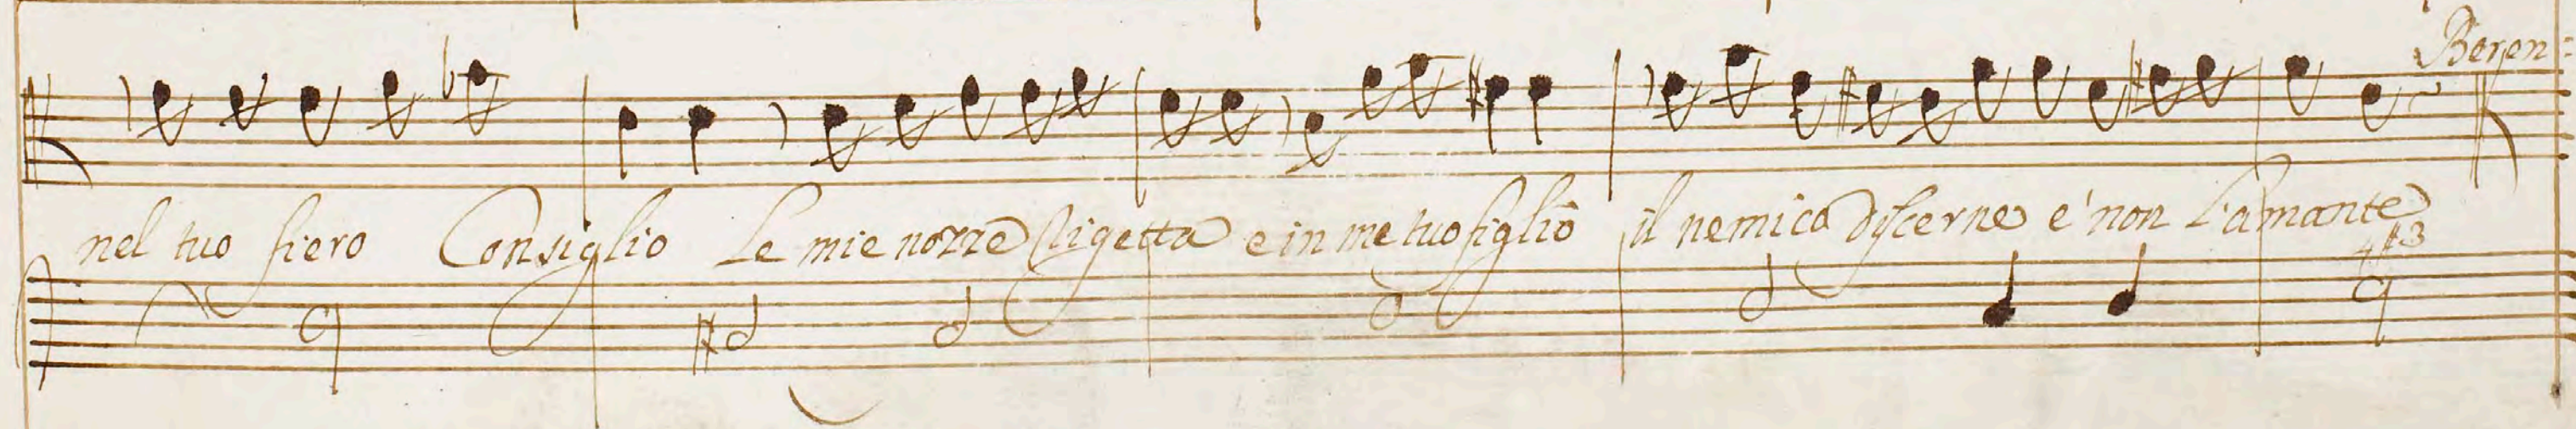 Beren:
nel tuo fiero Consiglio Le mie nozze Rigetta e in me tuo figlio il nemico discerne e' non L'amante
4 #3